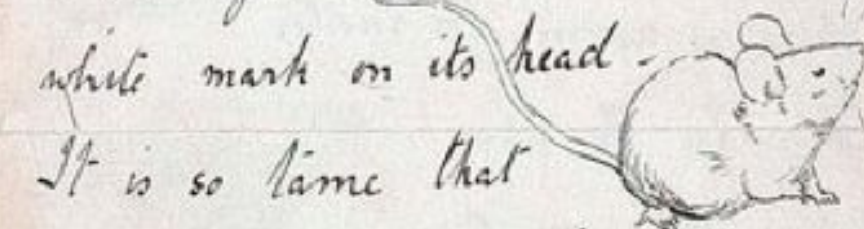 white mark on its head -
It is so tame that